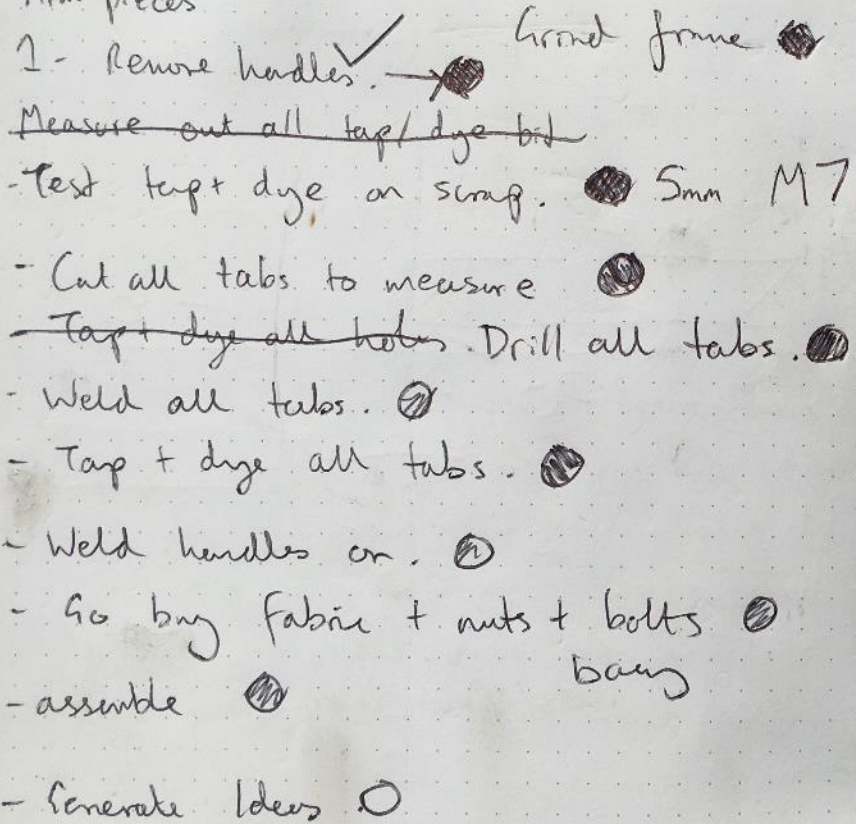 pieces
1- Remove handles. Grind frame
Measure out all tap/dye bit
-Test tap+ dye on scrap. 5mm M7
- Cut all tabs to measure
- Tap+ dye all holes. Drill all tabs.
- Weld all tabs.
- Tap + dye all tabs.
- Weld handles on.
- Go buy fabric + nuts + bolts
- assemble
- Generate Ideas